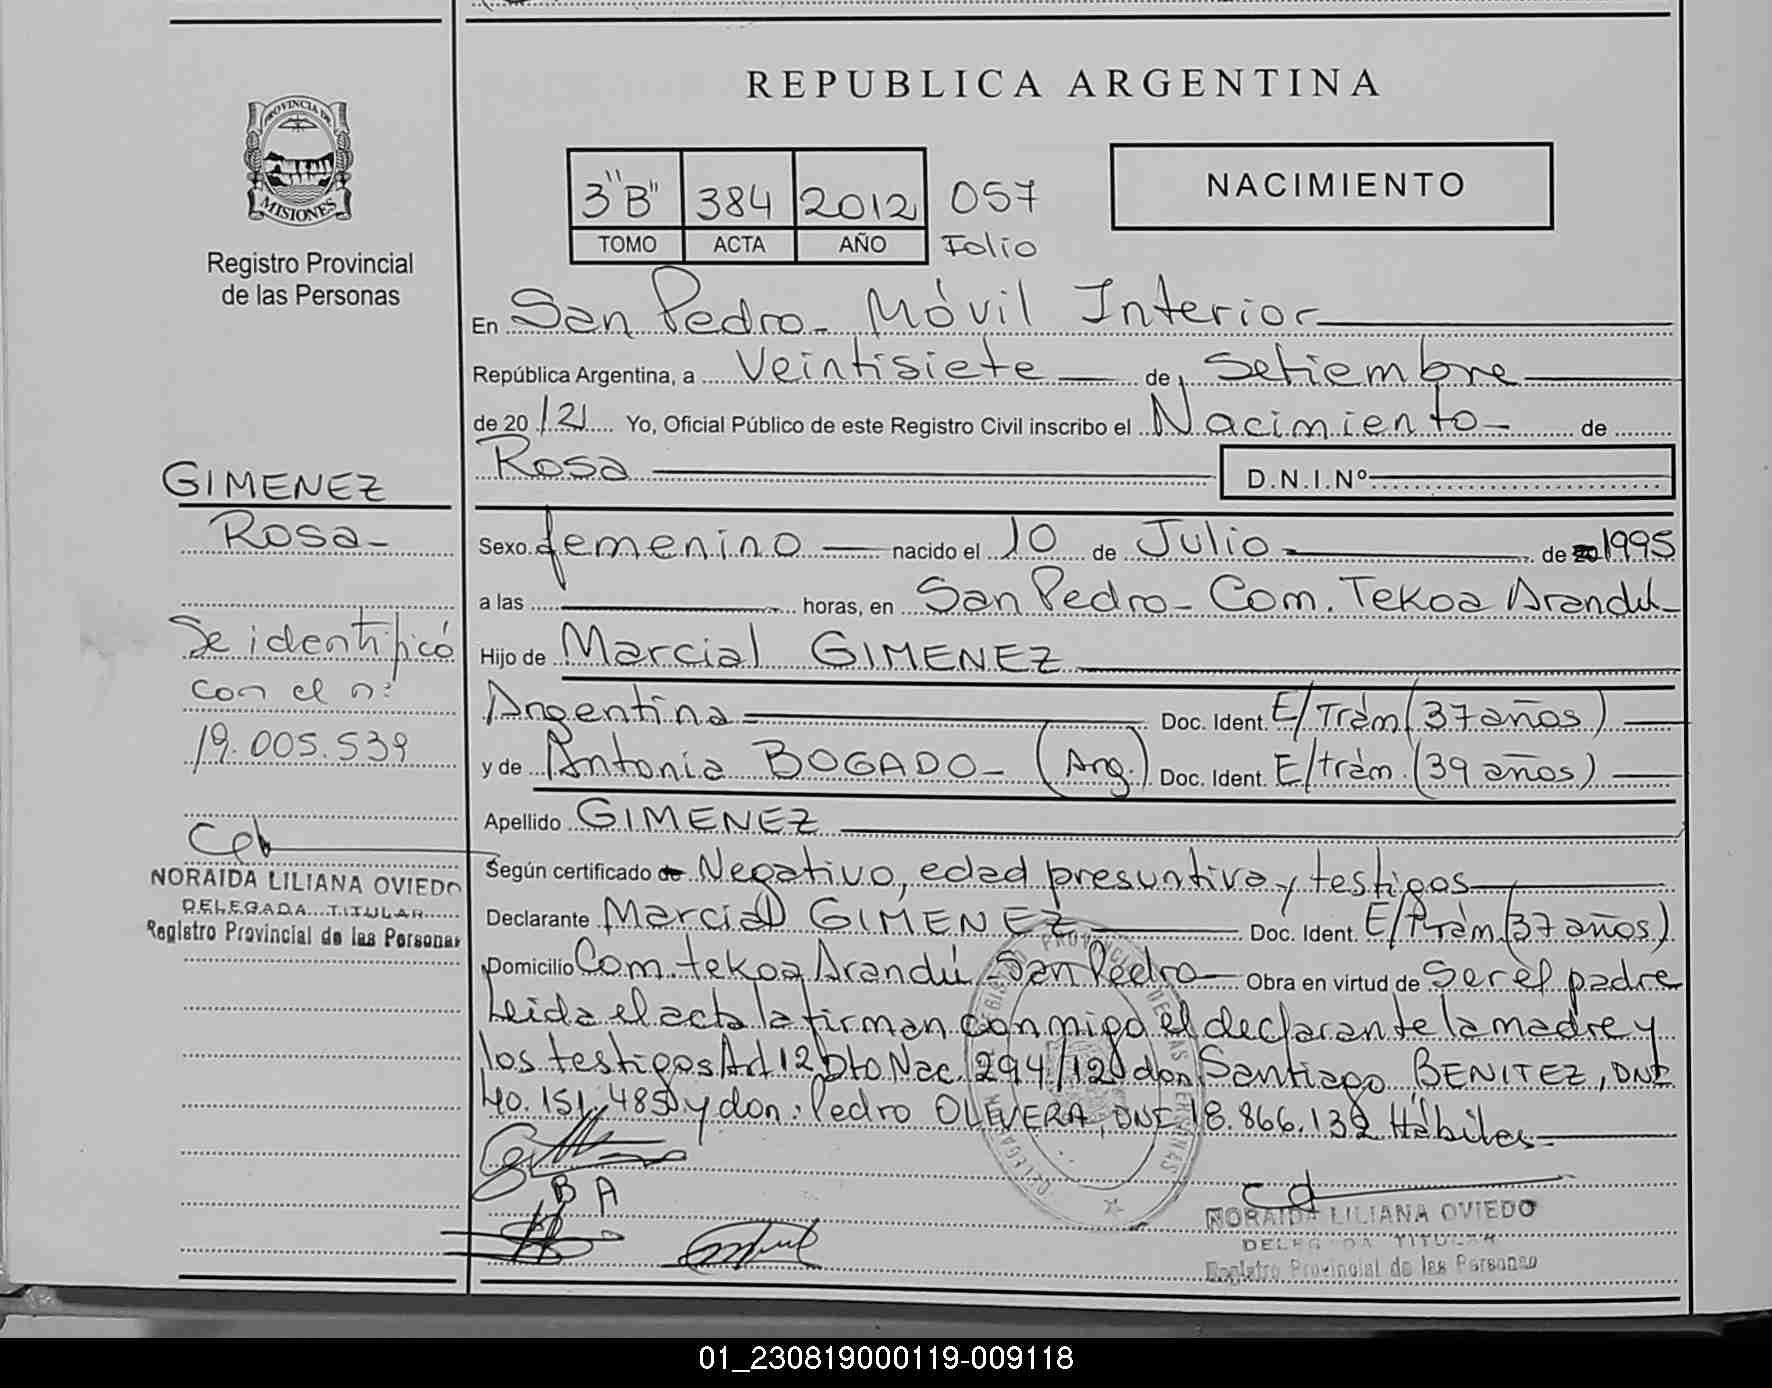 REPUBLICA ARGENTINA
PROVINCIA DE
MISIONES
Registro Provincial
de las Personas
3"B" 384 2012 057
TOMO ACTA AÑO Folio
NACIMIENTO
En San Pedro - Móvil Interior
República Argentina, a Veintisiete de Setiembre
de 20 12 Yo, Oficial Público de este Registro Civil inscribo el Nacimiento - de
Rosa D.N.I.Nº
GIMENEZ
Rosa -
Se identificó
con el nº
19.005.539
NORAIDA LILIANA OVIEDO
DELEGADA TITULAR
Registro Provincial de las Personas
Sexo femenino nacido el 10 de Julio de 1995
a las horas, en San Pedro - Com. Tekoa Arandú -
Hijo de Marcial GIMENEZ
Argentina Doc. Ident. E/Trám (37 años)
y de Antonia BOGADO - (Arg.) Doc. Ident. E/trám. (39 años)
Apellido GIMENEZ
Según certificado de Negativo, edad presuntiva y testigos
Declarante Marcial GIMENEZ Doc. Ident. E/Trám (37 años)
Domicilio Com. tekoa Arandú - San Pedro Obra en virtud de Ser el padre
Leida el acta la firman conmigo el declarante la madre y
los testigos Art 12 Dto Nac. 294/12 don Santiago BENITEZ, DNI
40.151.485 y don: Pedro OLIVERA, DNI 18.866.132 Hábiles -
B A
NORAIDA LILIANA OVIEDO
DELEGADA TITULAR
Registro Provincial de las Personas
01_230819000119-009118